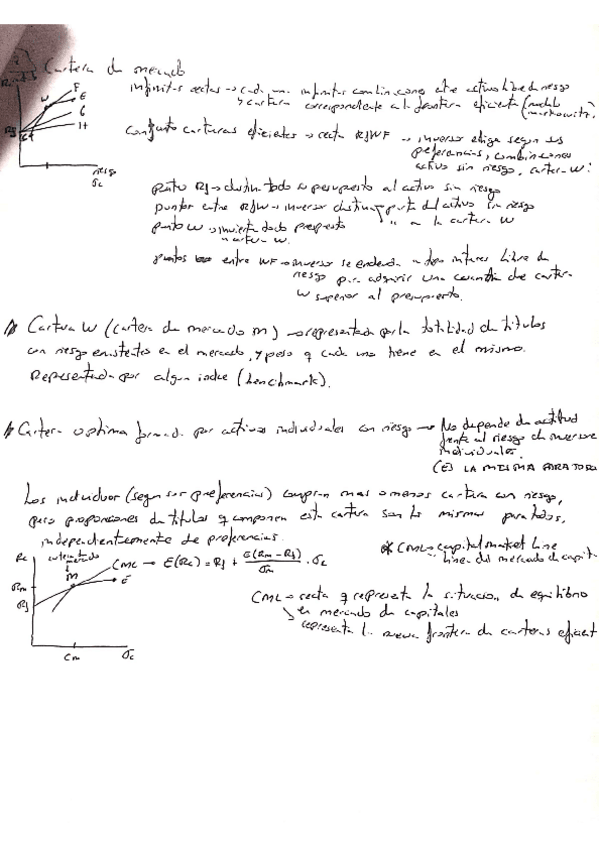 Cartera de mercado
infinitas rectas → cada una infinitas combinaciones entre activo libre de riesgo
↳ cartera correspondiente a la frontera eficiente (modelo
markowitz)
F
E
W
G
H
Rf
riesgo
σc
Conjunto carteras eficientes → recta RfWF → inversor elige según sus
preferencias, combinaciones
activo sin riesgo, cartera W:
punto Rf → destina todo su presupuesto al activo sin riesgo
puntos entre RfW → inversor destina parte del activo sin riesgo
" a la cartera W
punto W → invierte todo presupuesto
en cartera W.
puntos entre WF → inversor se endeuda a tipo interes libre de
riesgo para adquirir una cuantía de cartera
W superior al presupuesto.
Cartera W (cartera de mercado M) → representada por la totalidad de títulos
con riesgo existentes en el mercado, y peso q cada uno tiene en el mismo.
Representada por algun indice (benchmark).
Cartera optima formada por activos individuales con riesgo → No depende de actitud
frente al riesgo de inversores
individuales.
(E) LA MISMA PARA TODOS
Los individuos (segun sus preferencias) compran mas o menos cartera con riesgo,
pero proporciones de titulos q componen esta cartera son las mismas para todos,
independientemente de preferencias.
* CML → capital market line
linea del mercado de capit
Rc
cartera de mercado
M
CML → E(Rc) = Rf + E(Rm - Rf) / σm · σc
E
Rm
Rf
σm
σc
CML → recta q representa la situación de equilibrio
en mercado de capitales
↳ representa la nueva frontera de carteras eficient